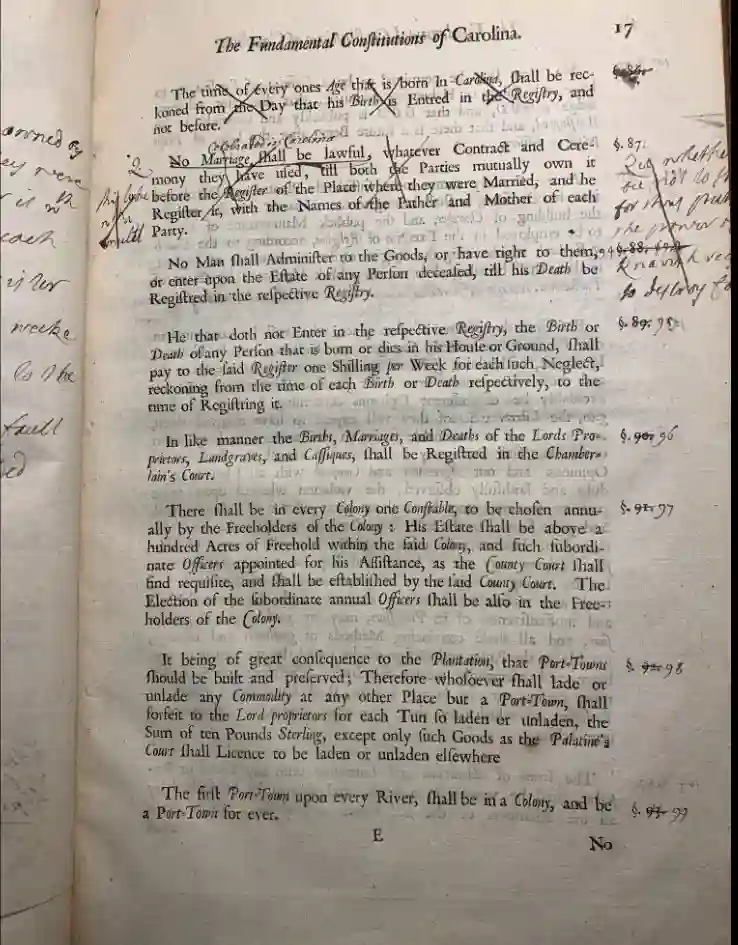 The Fundamental Conſtitutions of Carolina.
17
The time of every ones Age that is born In Carolina, ſhall be rec-
koned from the Day that his Birth is Entred in the Regiſtry, and
not before.
§. 86.
Celebrated in Carolina
No Marriage ſhall be lawful, whatever Contract and Cere-
§. 87.
mony they have uſed, till both the Parties mutually own it
before the Regiſter of the Place where they were Married, and he
Regiſter it, with the Names of the Father and Mother of each
Party.
whether
No Man ſhall Adminiſter to the Goods, or have right to them,
94 §. 88.
or enter upon the Eſtate of any Perſon deceaſed, till his Death be
Regiſtred in the reſpective Regiſtry.
to deſtroy
He that doth not Enter in the reſpective Regiſtry, the Birth or
§. 89. 95
Death of any Perſon that is born or dies in his Houſe or Ground, ſhall
pay to the ſaid Regiſter one Shilling per Week for each ſuch Neglect,
reckoning from the time of each Birth or Death reſpectively, to the
time of Regiſtring it.
In like manner the Births, Marriages, and Deaths of the Lords Pro-
§. 90. 96
prietors, Landgraves, and Caſſiques, ſhall be Regiſtred in the Chamber-
lain's Court.
There ſhall be in every Colony one Conſtable, to be choſen annu-
§. 91. 97
ally by the Freeholders of the Colony : His Eſtate ſhall be above a
hundred Acres of Freehold within the ſaid Colony, and ſuch ſubordi-
nate Officers appointed for his Aſſiſtance, as the County Court ſhall
find requiſite, and ſhall be eſtabliſhed by the ſaid County Court. The
Election of the ſubordinate annual Officers ſhall be alſo in the Free-
holders of the Colony.
It being of great conſequence to the Plantation, that Port-Towns
§. 92. 98
ſhould be built and preſerved; Therefore whoſoever ſhall lade or
unlade any Commodity at any other Place but a Port-Town, ſhall
forfeit to the Lord proprietors for each Tun ſo laden or unladen, the
Sum of ten Pounds Sterling, except only ſuch Goods as the Palatine's
Court ſhall Licence to be laden or unladen elſewhere
The firſt Port-Town upon every River, ſhall be in a Colony, and be
§. 93. 99
a Port-Town for ever.
E
No
owned by
each
fault